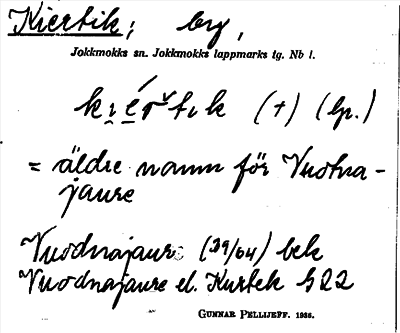 Kiertik; by,
Jokkmokks sn. Jokkmokks lappmarks tg. Nb l.
kı̯é̯rtık (+) (lp.)
= äldre namn för Vuotna-
jaure
Vuodnajaure (29/64) bek
Vuodnajaure el. Kurtek § 22
GUNNAR PELLIJEFF. 1938.